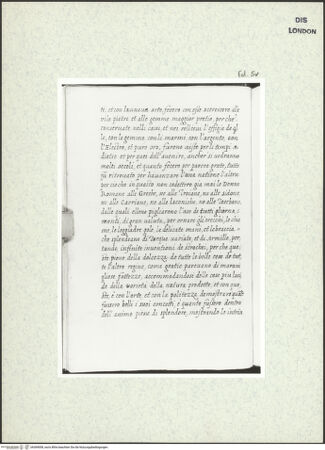 DIS
LONDON
Fol. 5v
te, et con l'annexa arte, fecero con esse accrescere alle
vile pietre et alle gemme maggior pretio, per che
conservate nelli casi, et nei
le, con le gemme, con li marmi, con l'argento, con
l'Electro, et puro oro, furono
dietro et per quei dell'auenire, anchor si vedranno
molti secoli, et quanto fecero per parere grate, tutto
fu ritrovato per
per cio che in questo non cedettero gia mai le Donne
Romane alle Greche, ne alle Troiane, ne alle Sidonie
ne alle Carriane, ne alle Laconiche, ne alle
dalle quali elleno pigliarono l'uso de tutti gli orna,
menti, di gran valuta, per ornare gli orecchi, le chio
me, le leggiadre gole, le delicate mani, et le braccia,
che splendevano de Vacque variate, et di Armille, por,
tando infinite inventioni de stracchei, per che que
ste piene della dolcezza, de tutte le belle cose de tut,
te l'altre regine, come gratie parevano di maravi
gliose fattezze, accommodandosi delle cose piu lucide
de della varieta, della natura prodotte, et con que,
ste, è con l'arte, et con la politezza demostrare
fussero belli i suoi concetti, è quanto fussero dentro
dell'animo piene di splendore, mostrando le intrin